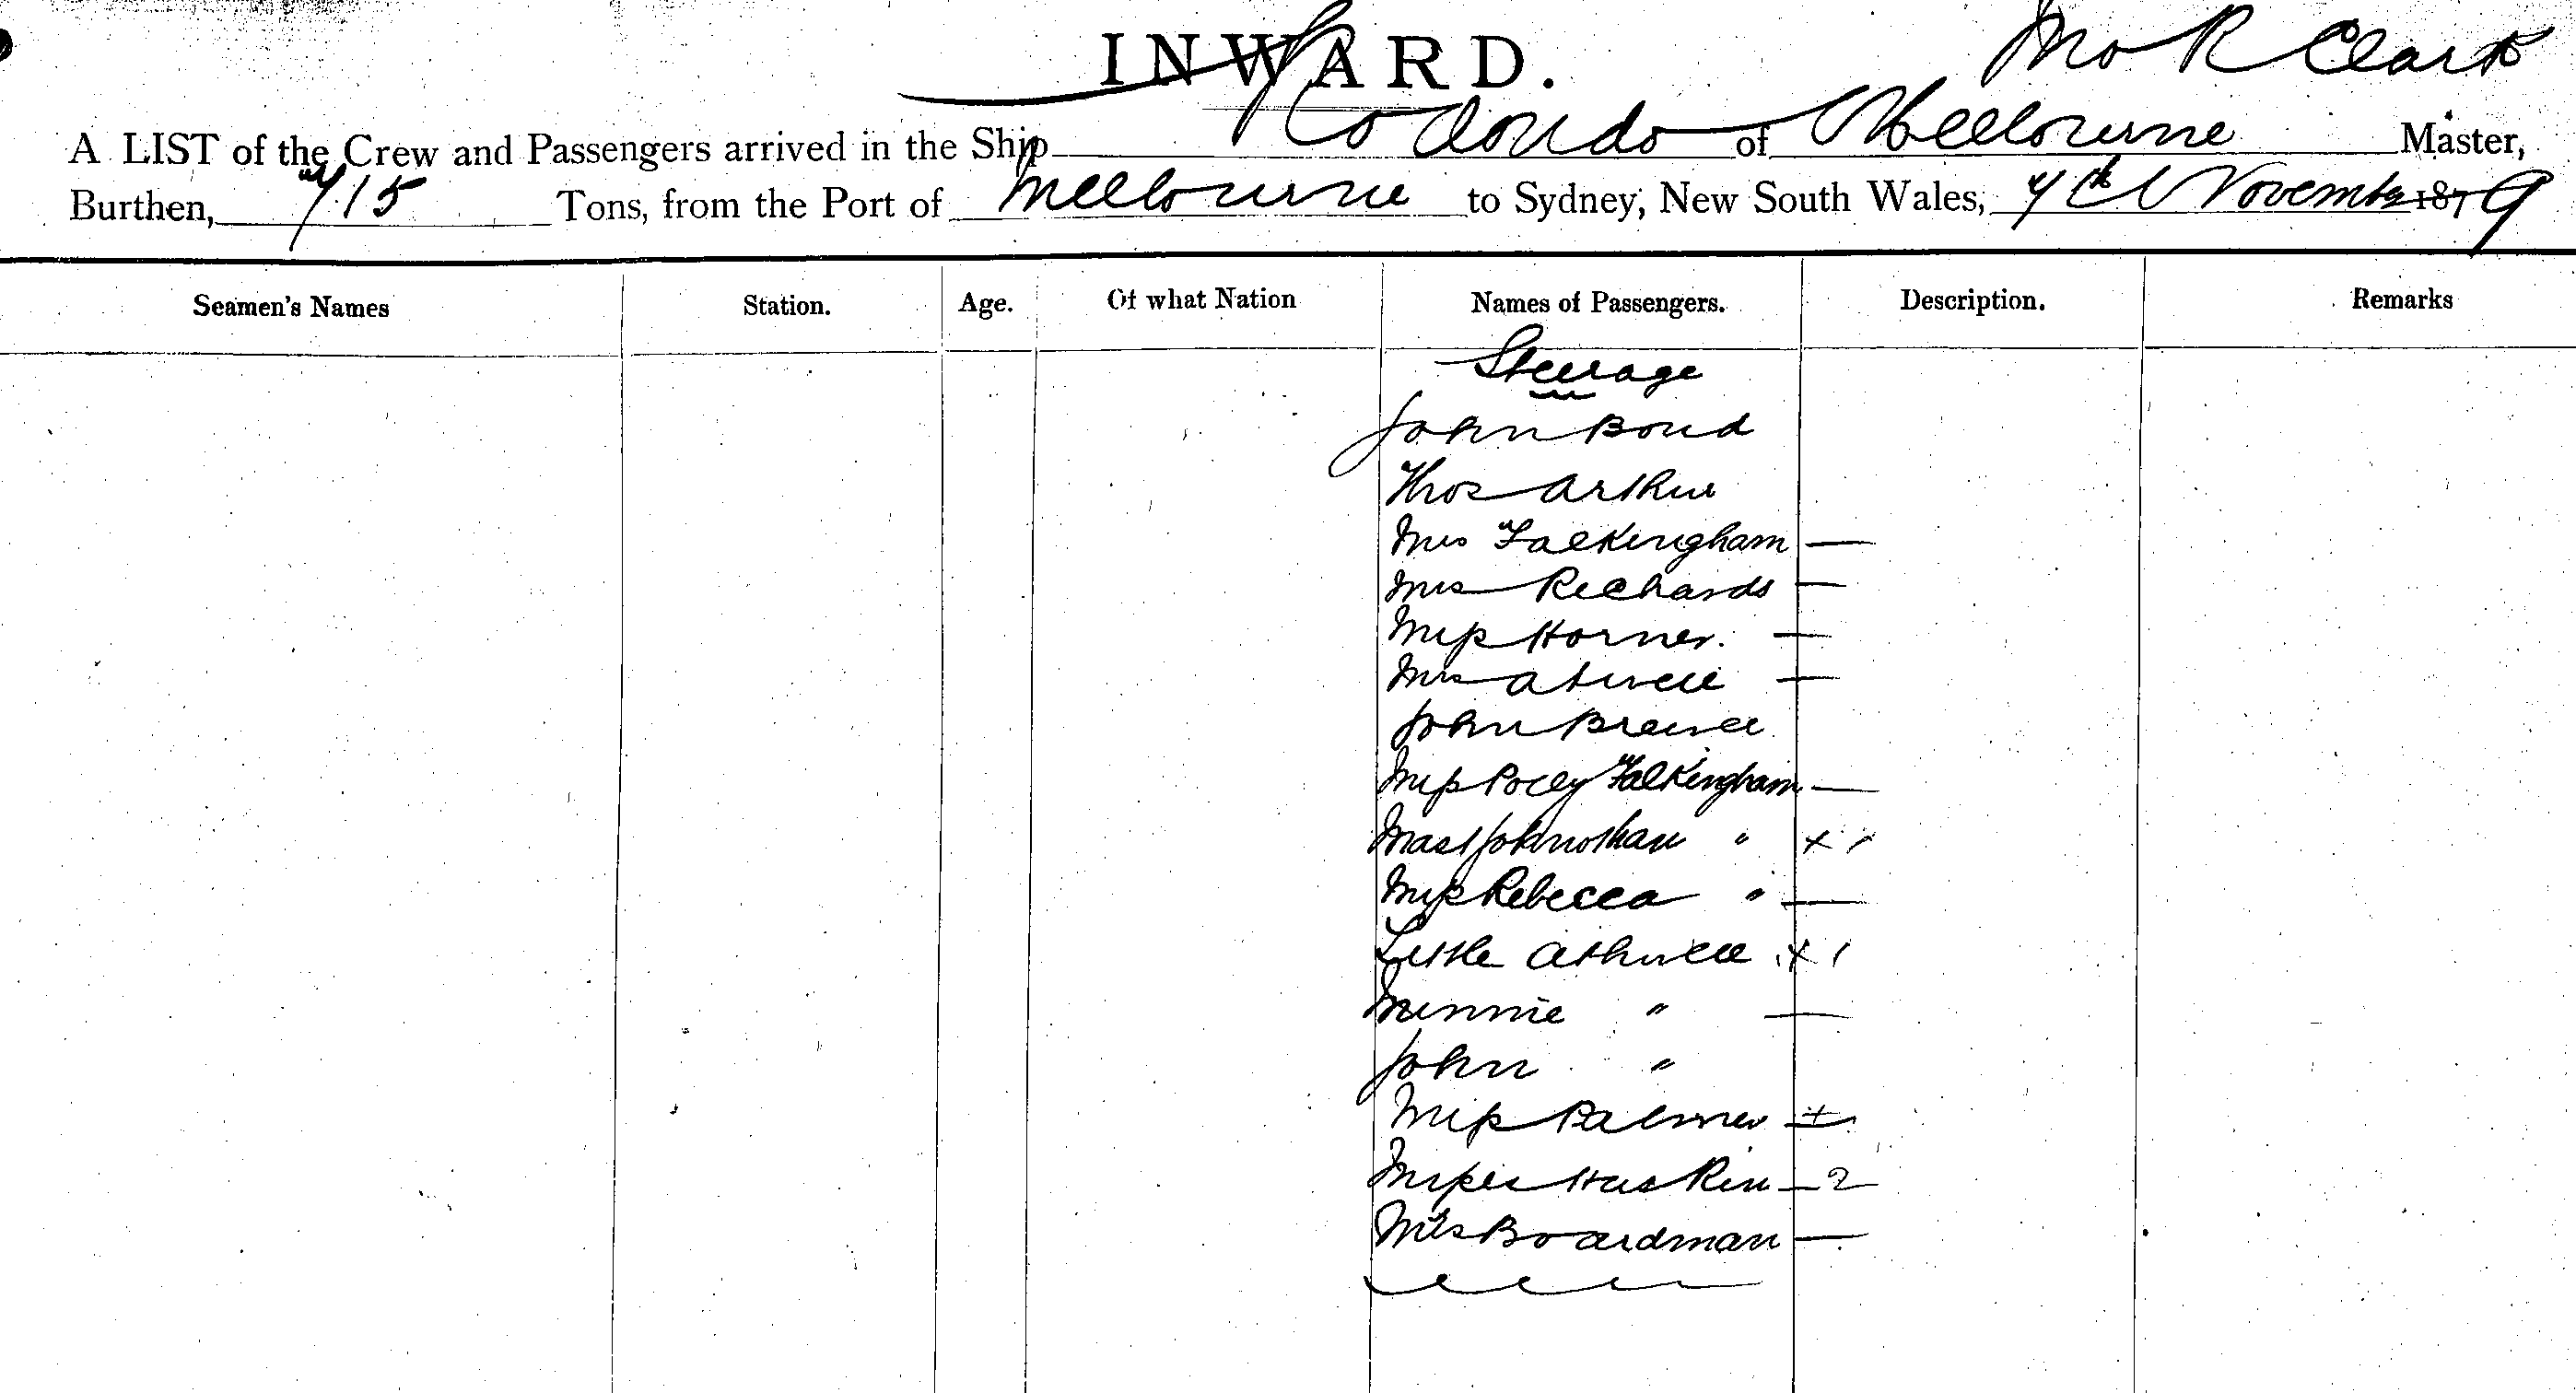 INWARD.
Jno R Clark
A LIST of the Crew and Passengers arrived in the Ship Rodondo of Melbourne Master,
Burthen, 715 Tons, from the Port of Melbourne to Sydney, New South Wales, 7th November 1879
Seamen's Names Station. Age. Of what Nation Names of Passengers. Description. Remarks
Steerage
John Bond
Thos Arthur
Mrs Falkingham —
Mrs Richards —
Miss Horner. —
Mrs Atwell —
John
Miss Polly Falkingham —
Mast Johnothan " x
Miss Rebecca " —
Little Athwell x 1
Minnie " —
John "
Miss Palmer +
Misses Haskin — 2
Mrs Boardman —